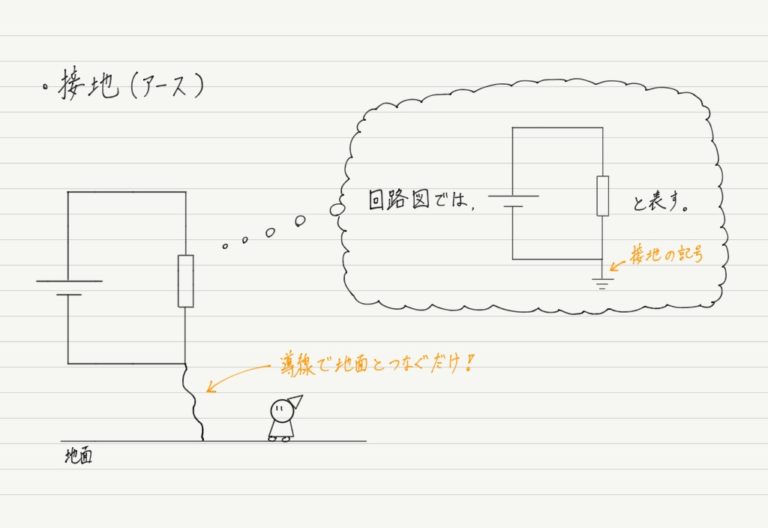 ・接地(アース)
回路図では、
と表す。
接地の記号
導線で地面とつなぐだけ!
地面